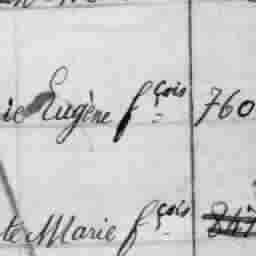 ie Eugène fçois 760
te Marie fçois